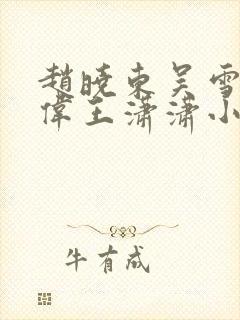 趙曉東吴雪
偉王潇潇小
牛有成